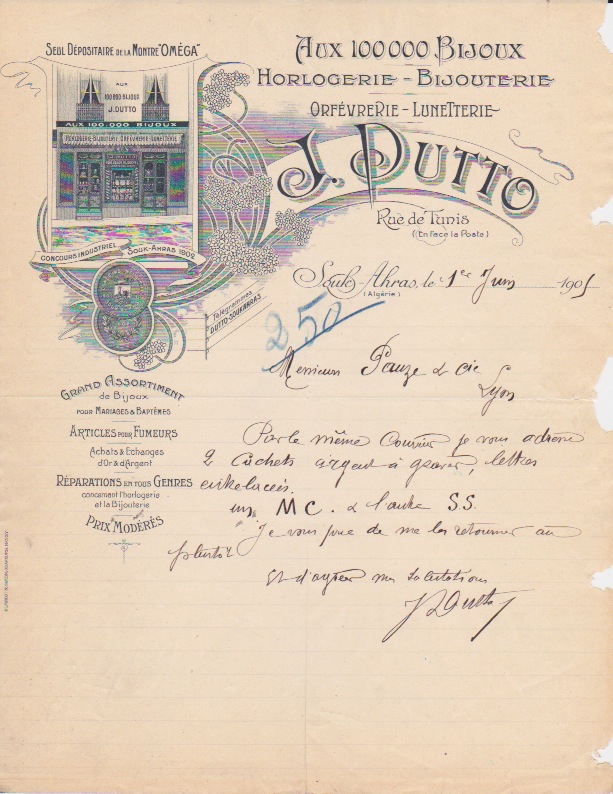 SEUL DÉPOSITAIRE DE LA MONTRE "OMÉGA"
AUX
100 000 BIJOUX
J. DUTTO
AUX 100.000 BIJOUX
HORLOGERIE-BIJOUTERIE-ORFÉVRERIE-LUNETTERIE
CONCOURS INDUSTRIEL SOUK-AHRAS 1902
AUX 100000 BIJOUX
HORLOGERIE - BIJOUTERIE
ORFÉVRERIE - LUNETTERIE
J. DUTTO
Rue de Tunis
(En Face la Poste)
Télégrammes
DUTTO-SOUKAHRAS
Souk-Ahras, le 1er Juin 1905
(Algérie)
250
Messieurs Pauze & Cie
Lyon
GRAND ASSORTIMENT
de Bijoux
POUR MARIAGES & BAPTÊMES
ARTICLES POUR FUMEURS
Achats & Echanges
d'Or & d'Argent
RÉPARATIONS EN TOUS GENRES
concernant l'horlogerie
et la Bijouterie
PRIX MODÉRÉS
Par le même Courrier je vous adresse
2 cachets argent à graver, lettres
enkelacées.
un MC. & l'autre S.S.
Je vous prie de me les retourner au
plutôt
Et d'agréer mes salutations
J Dutto